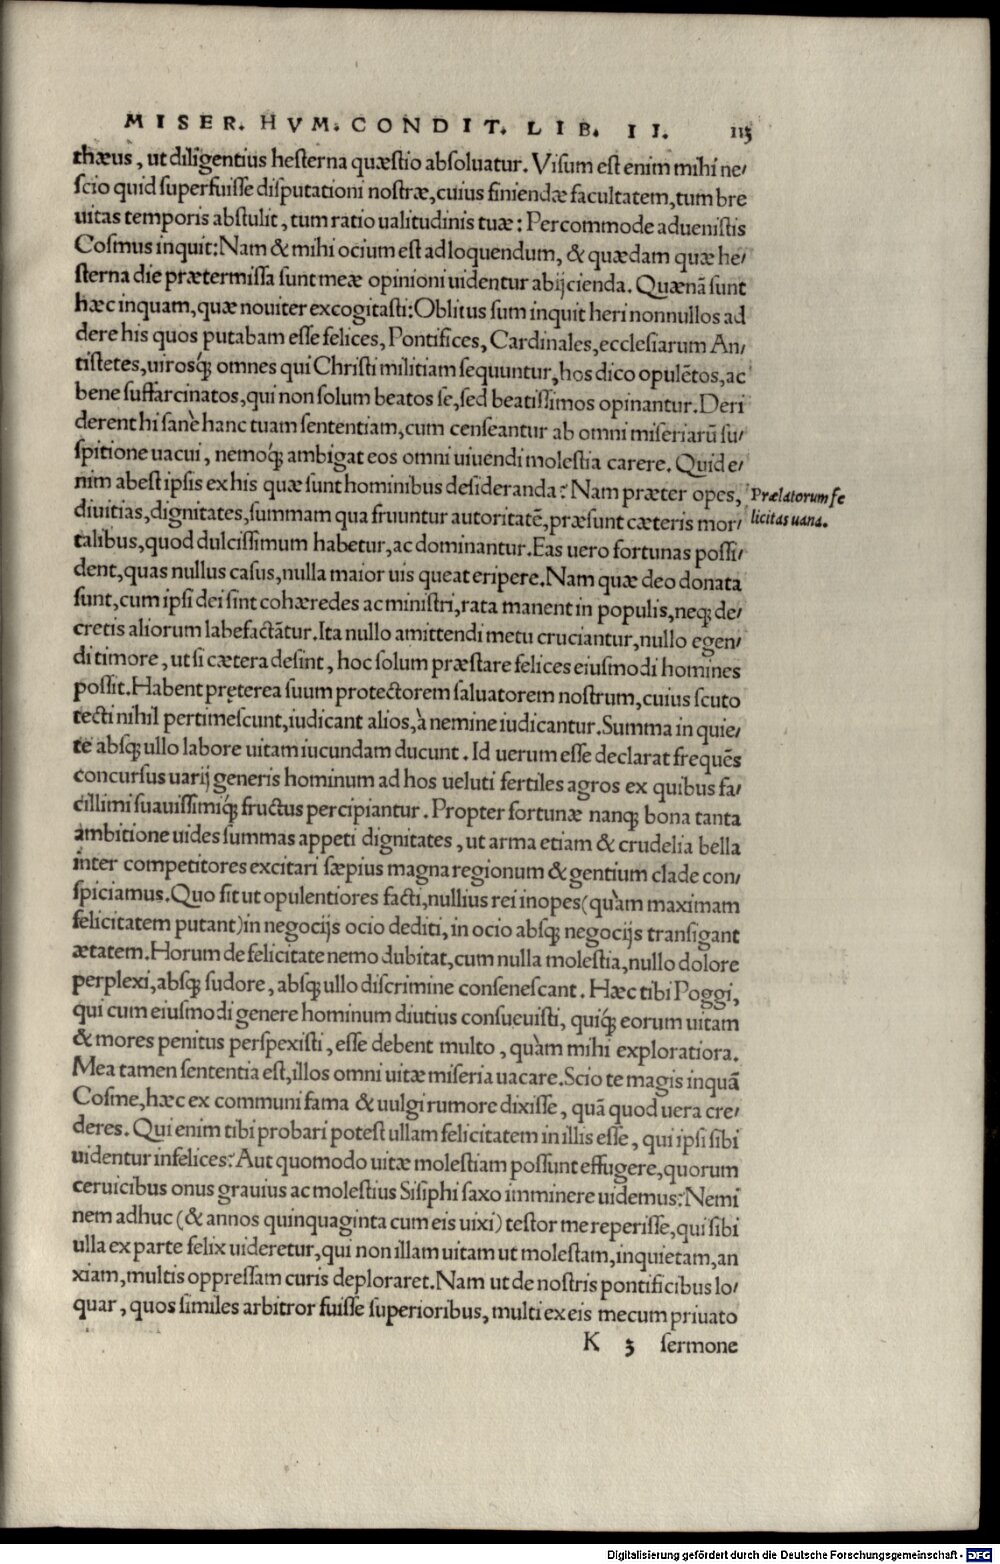 MISER. HVM. CONDIT. LIB. II. 113
thæus, ut diligentius hesterna quæstio absoluatur. Visum est enim mihi ne/
scio quid superfuisse disputationi nostræ, cuius finiendæ facultatem, tum bre
uitas temporis abstulit, tum ratio ualitudinis tuæ: Percommode aduenistis
Cosmus inquit: Nam & mihi ocium est ad loquendum, & quædam quæ he/
sterna die prætermissa sunt meæ opinioni uidentur abijcienda. Quænã sunt
hæc inquam, quæ nouiter excogitasti: Oblitus sum inquit heri nonnullos ad
dere his quos putabam esse felices, Pontifices, Cardinales, ecclesiarum An/
tistetes, uirosq́; omnes qui Christi militiam sequuntur, hos dico opulẽtos, ac
bene suffarcinatos, qui non solum beatos se, sed beatissimos opinantur. Deri
derent hi sanè hanc tuam sententiam, cum censeantur ab omni miseriarũ su/
spitione uacui, nemoq́; ambigat eos omni uiuendi molestia carere. Quid e/
nim abest ipsis ex his quæ sunt hominibus desideranda? Nam præter opes,
diuitias, dignitates, summam qua fruuntur autoritatẽ, præsunt cæteris mor/
talibus, quod dulcissimum habetur, ac dominantur. Eas uero fortunas possi/
dent, quas nullus casus, nulla maior uis queat eripere. Nam quæ deo donata
sunt, cum ipsi dei sint cohæredes ac ministri, rata manent in populis, neq; de/
cretis aliorum labefactãtur. Ita nullo amittendi metu cruciantur, nullo egen/
di timore, ut si cætera desint, hoc solum præstare felices eiusmodi homines
possit. Habent pręterea suum protectorem saluatorem nostrum, cuius scuto
tecti nihil pertimescunt, iudicant alios, à nemine iudicantur. Summa in quie/
te absq; ullo labore uitam iucundam ducunt. Id uerum esse declarat frequẽs
concursus uarij generis hominum ad hos ueluti fertiles agros ex quibus fa/
cillimi suauissimiq́; fructus percipiantur. Propter fortunæ nanq; bona tanta
ambitione uides summas appeti dignitates, ut arma etiam & crudelia bella
inter competitores excitari sæpius magna regionum & gentium clade con/
spiciamus. Quo fit ut opulentiores facti, nullius rei inopes (quàm maximam
felicitatem putant) in negocijs ocio dediti, in ocio absq; negocijs transigant
ætatem. Horum de felicitate nemo dubitat, cum nulla molestia, nullo dolore
perplexi, absq; sudore, absq; ullo discrimine consenescant. Hæc tibi Poggi,
qui cum eiusmodi genere hominum diutius consueuisti, quiq́; eorum uitam
& mores penitus perspexisti, esse debent multo, quàm mihi exploratiora.
Mea tamen sententia est, illos omni uitæ miseria uacare. Scio te magis inquã
Cosme, hæc ex communi fama & uulgi rumore dixisse, quã quod uera cre/
deres. Qui enim tibi probari potest ullam felicitatem in illis esse, qui ipsi sibi
uidentur infelices? Aut quomodo uitæ molestiam possunt effugere, quorum
ceruicibus onus grauius ac molestius Sisiphi saxo imminere uidemus? Nemi
nem adhuc (& annos quinquaginta cum eis uixi) testor me reperisse, qui sibi
ulla ex parte felix uideretur, qui non illam uitam ut molestam, inquietam, an
xiam, multis oppressam curis deploraret. Nam ut de nostris pontificibus lo/
quar, quos similes arbitror fuisse superioribus, multi ex eis mecum priuato
K 3 sermone
Prælatorum fe
licitas uana.
Digitalisierung gefördert durch die Deutsche Forschungsgemeinschaft - DFG